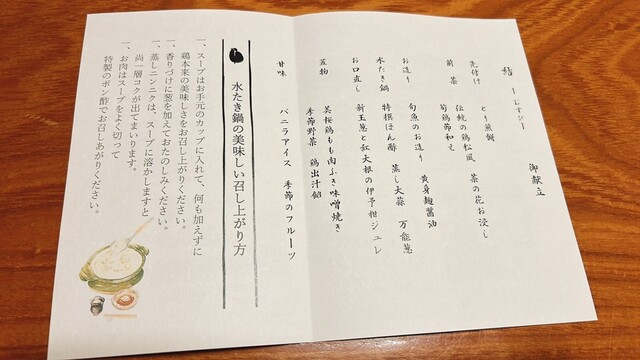 御献立
先付け とり煎餅 菜の花お浸し
前菜 伝統の鶏松風
筍鶏節和え
お造り 旬魚のお造り 黄身麹醤油
水たき鍋 特撰ぽん酢 蒸し大蒜 万能葱
お口直し 新玉葱と紅大根の伊予柑ジュレ
煮物 美桜鶏もも肉ふき味噌焼き
季節野菜 鶏出汁餡
甘味 バニラアイス 季節のフルーツ
水たき鍋の美味しい召し上がり方
一、スープはお手元のカップに入れて、何も加えずに
鶏本来の美味しさをお召し上がりください。
一、香りづけに葱を加えておたのしみください。
一、蒸しニンニクは、スープに溶かしますと
尚一層コクが出てまいります。
一、お肉はスープをよく切って
特製のポン酢でお召しあがりください。